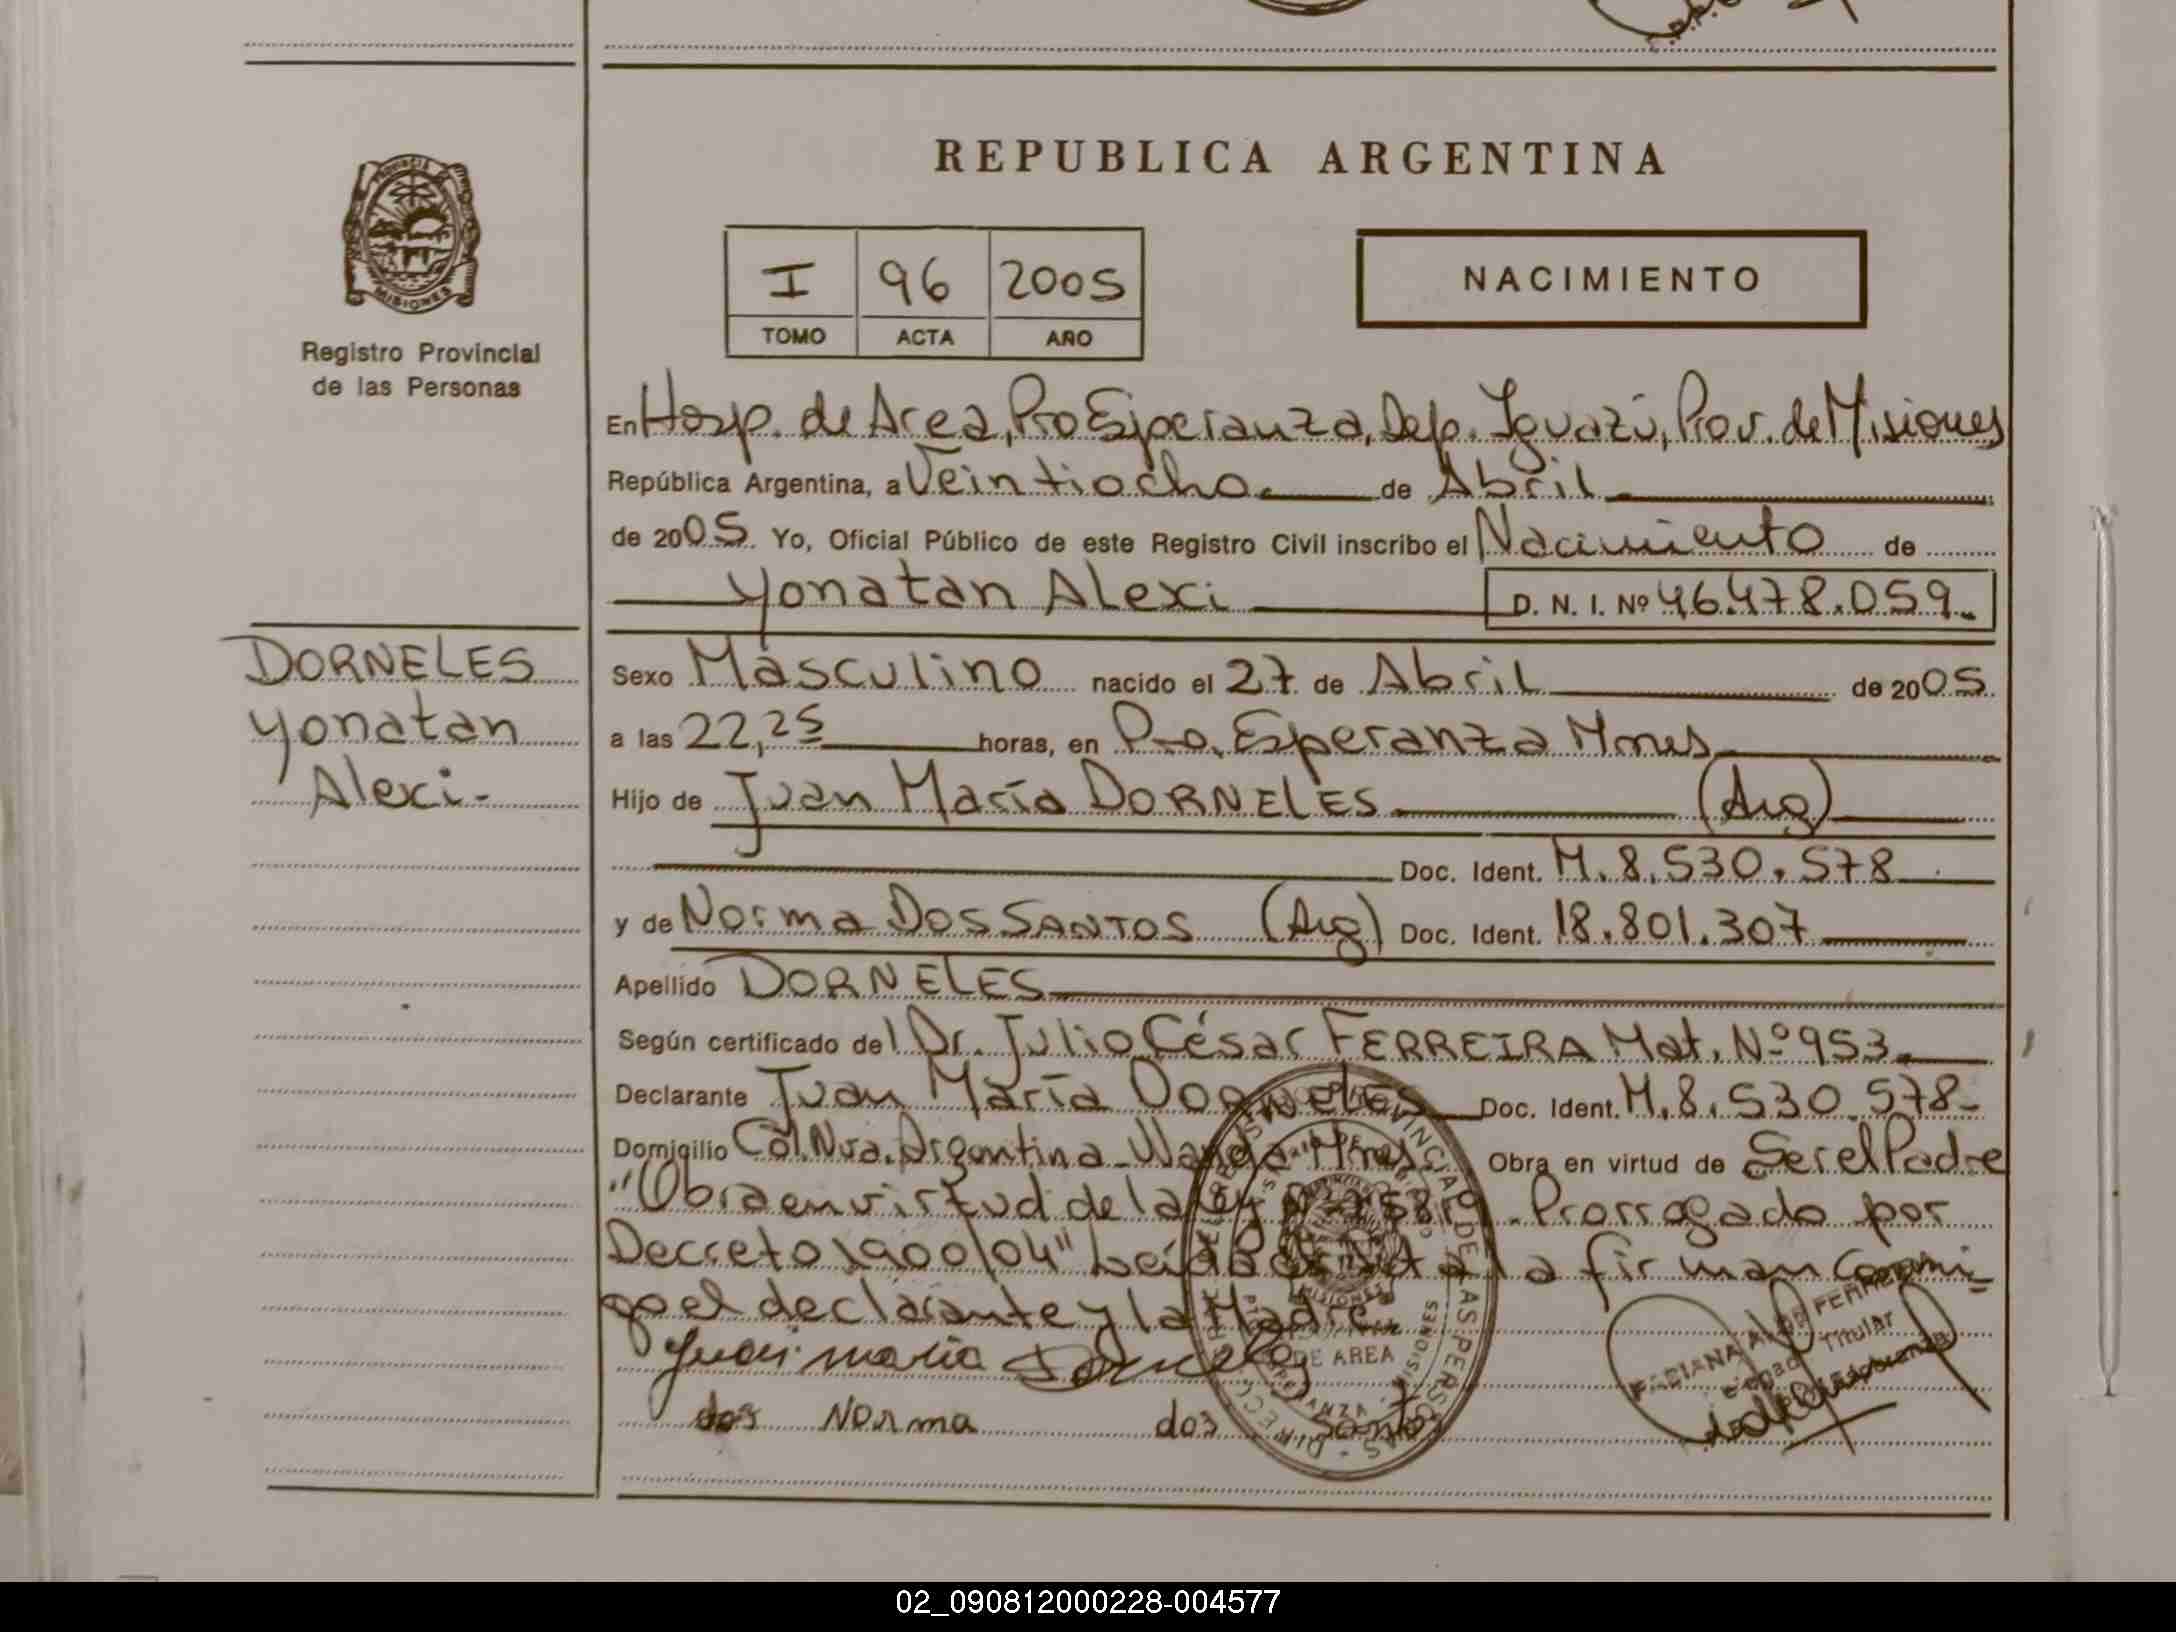 PROVINCIA DE
MISIONES
Registro Provincial
de las Personas
DORNELES
Yonatan
Alexi-
REPUBLICA ARGENTINA
I 96 2005
TOMO ACTA AÑO
NACIMIENTO
En Hosp. de Area, Pto Esperanza, Dep. Iguazú, Prov. de Misiones
República Argentina, a Veintiocho. de Abril
de 2005 Yo, Oficial Público de este Registro Civil inscribo el Nacimiento de
Yonatan Alexi D. N. I. Nº 46.478.059.
Sexo Masculino nacido el 27 de Abril de 2005
a las 22,25 horas, en Pto. Esperanza Mnes
Hijo de Juan María DORNELES (Arg)
Doc. Ident. M. 8.530.578
y de Norma DOS SANTOS (Arg) Doc. Ident. 18.801.307
Apellido DORNELES
Según certificado del Dr. Julio César FERREIRA Mat. Nº 953.
Declarante Juan María DORNELES Doc. Ident. M. 8.530.578-
Domicilio Col. Nva. Argentina - Wanda Mnes Obra en virtud de Ser el Padre
"Obra en virtud de la Ley Prorrogado por
Decreto 1900/04" Leída el acta la firman conmi-
go el declarante y la Madre
Juan maria Dorneles
dos Norma dos Santo
DE AREA
MISIONES
FABIANA
Titular
02_090812000228-004577